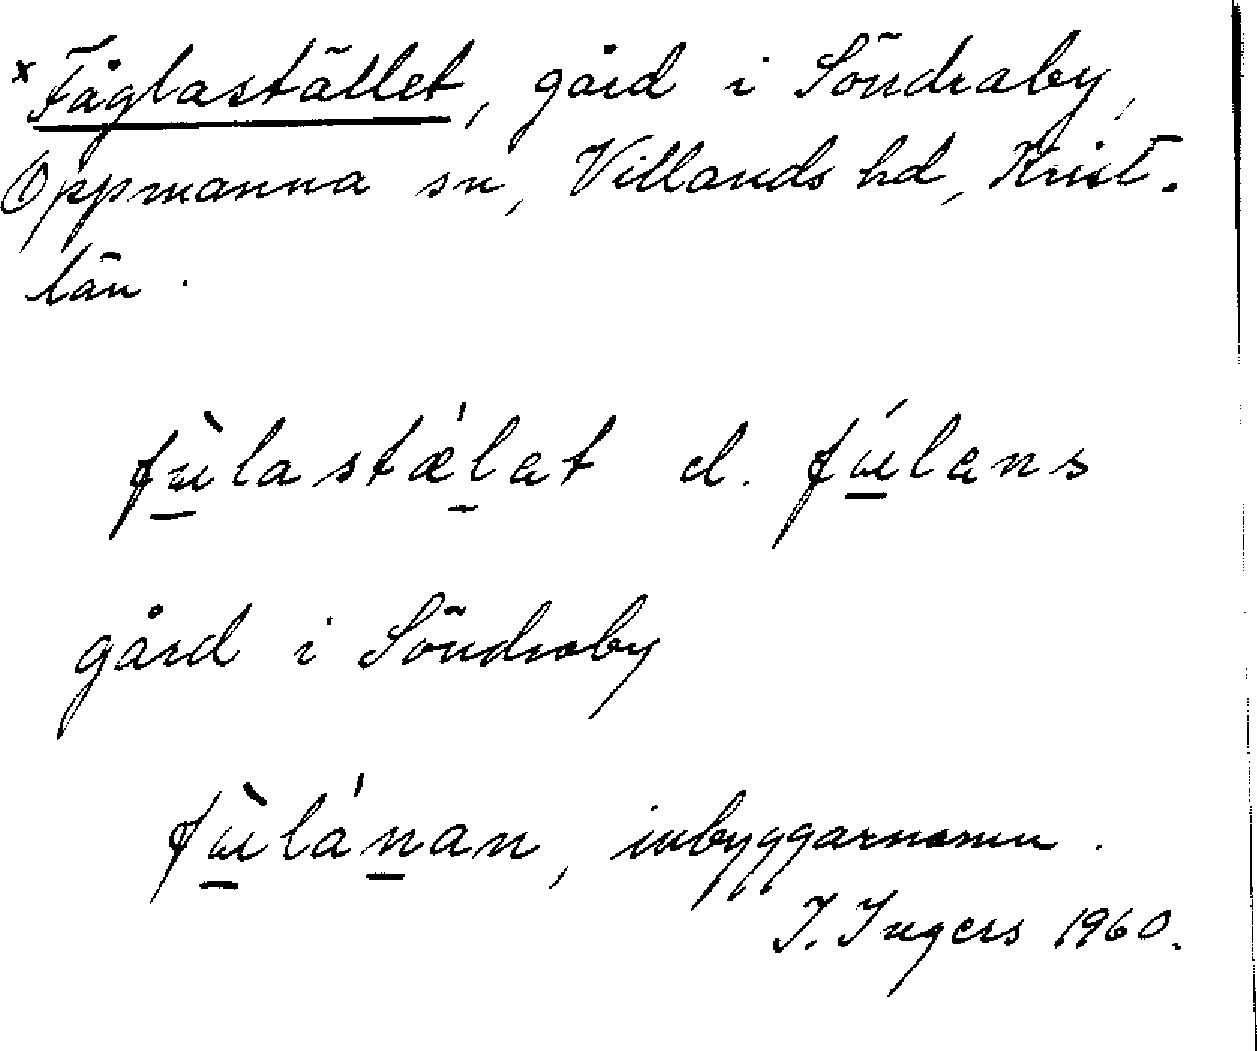 x Fåglastället, gård i Söndraby,
Oppmanna sn, Villands hd, Krist.
län.
fɯ̱̀lastǽḻat el. fɯ̱́lans
gård i Söndraby
fɯ̱̀láṉan, inbyggarnamn.
I. Ingers 1960.